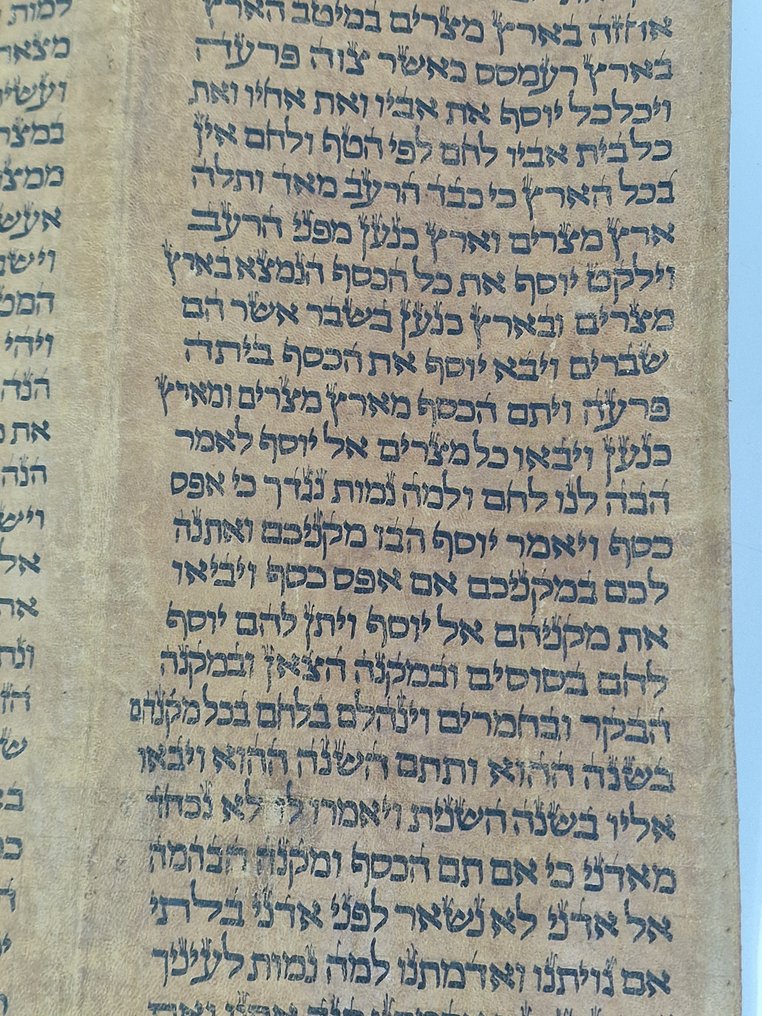 אחזה בארץ מצרים במיטב הארץ
בארץ רעמסס כאשר צוה פרעה
ויכלכל יוסף את אביו ואת אחיו ואת
כל בית אביו לחם לפי הטף ולחם אין
בכל הארץ כי כבד הרעב מאד ותלה
ארץ מצרים וארץ כנען מפני הרעב
וילקט יוסף את כל הכסף הנמצא בארץ
מצרים ובארץ כנען בשבר אשר הם
שברים ויבא יוסף את הכסף ביתה
פרעה ויתם הכסף מארץ מצרים ומארץ
כנען ויבאו כל מצרים אל יוסף לאמר
הבה לנו לחם ולמה נמות נגדך כי אפס
כסף ויאמר יוסף הבו מקניכם ואתנה
לכם במקניכם אם אפס כסף ויביאו
את מקניהם אל יוסף ויתן להם יוסף
לחם בסוסים ובמקנה הצאן ובמקנה
הבקר ובחמרים וינהלם בלחם בכל מקנהם
בשנה ההוא ותתם השנה ההוא ויבאו
אליו בשנה השנית ויאמרו לו לא נכחד
מאדני כי אם תם הכסף ומקנה הבהמה
אל אדני לא נשאר לפני אדני בלתי
אם גויתנו ואדמתנו למה נמות לעיניך
למות
ויהי
הנה
את
הנה